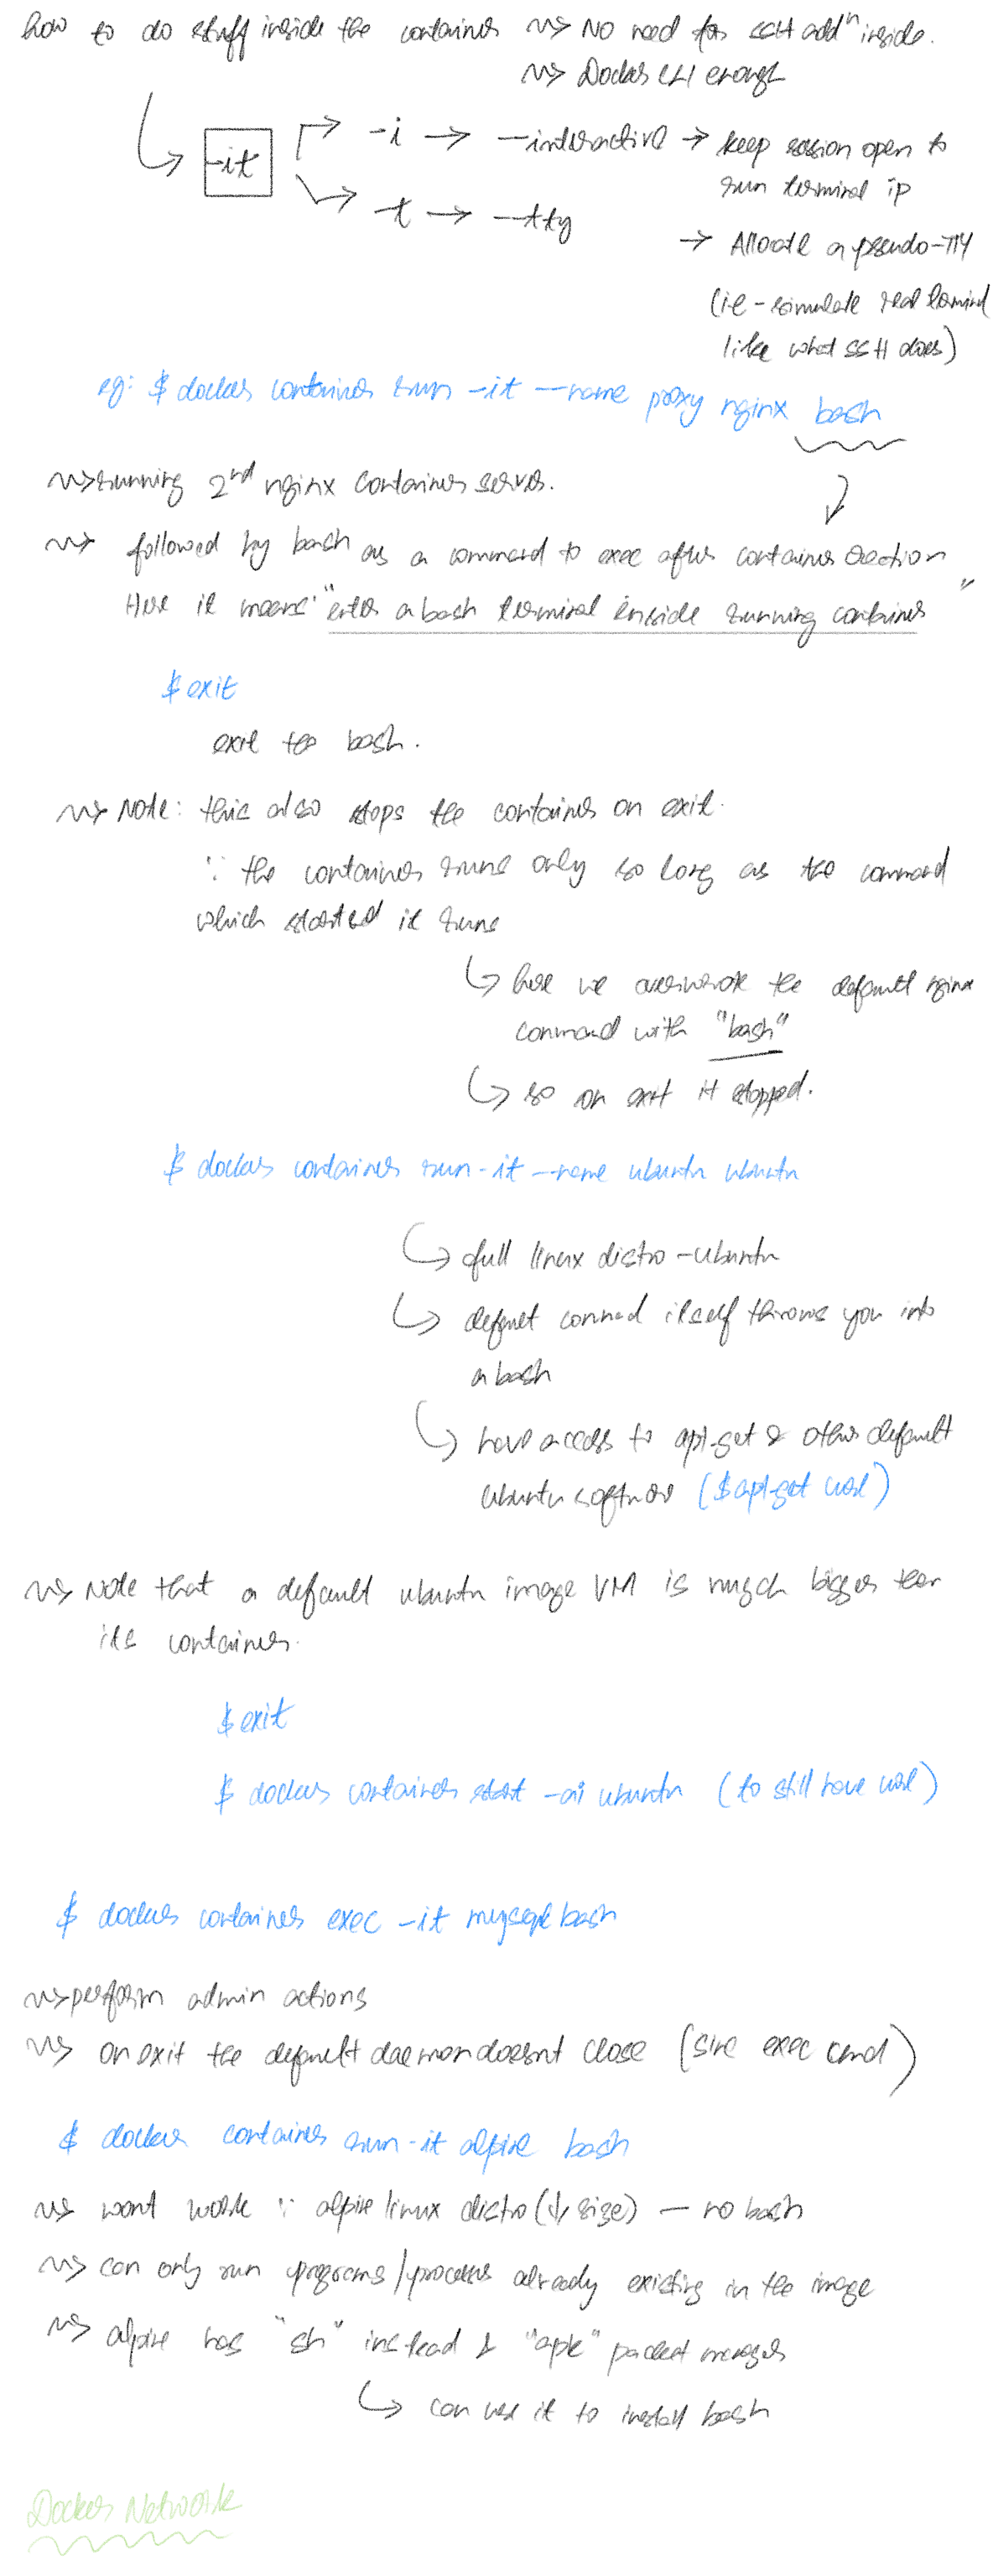 how to do stuff inside the container ⇝ No need for SSH addⁿ inside.
⇝ Docker CLI enough
-it → -i → --interactive → keep session open to
run terminal ip
→ -t → --tty → Allocate a pseudo-TTY
(ie - simulate real terminal
like what SSH does)
eg: $ docker container run -it --name proxy nginx bash
⇝ running 2nd nginx container server.
⇝ followed by bash as a command to exec after container creation
Here it means "enter a bash terminal inside running container"
$ exit
exit the bash.
⇝ Note: this also stops the container on exit.
∵ the container runs only so long as the command
which started it runs
↳ here we overwrote the default nginx
command with "bash"
↳ so on exit it stopped.
$ docker container run -it --name ubuntu ubuntu
↳ full linux distro - ubuntu
↳ default command itself throws you into
a bash
↳ have access to apt-get & other default
ubuntu software ($ apt-get curl)
⇝ Note that a default ubuntu image VM is much bigger than
its container.
$ exit
$ docker container start -ai ubuntu (to still have curl)
$ docker container exec -it mysql bash
⇝ perform admin actions
⇝ on exit the default daemon doesnt close (since exec cmd)
$ docker container run -it alpine bash
⇝ wont work ∵ alpine linux distro (↓ size) — no bash
⇝ can only run programs/process already existing in the image
⇝ alpine has "sh" instead & "apk" packet manager
↳ can use it to install bash
Docker Network